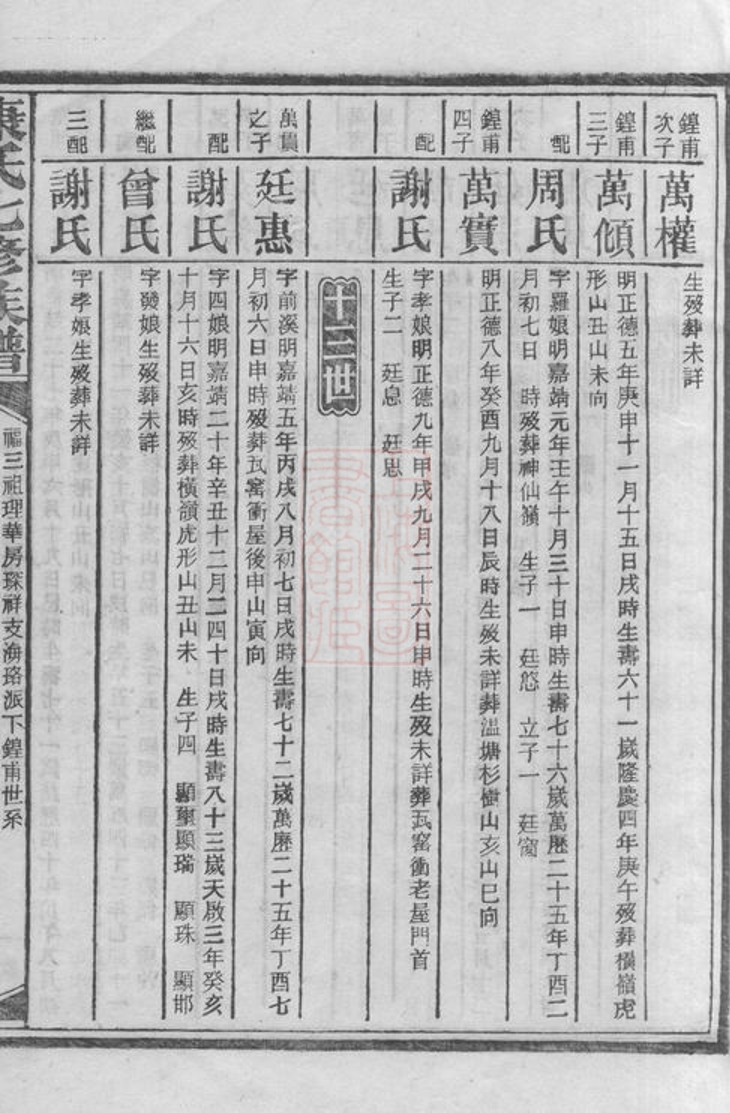 鍠甫
次子
萬權
生歿葬未詳
鍠甫
三子
萬傾
明正德五年庚申十一月十五日戌時生壽六十一歲隆慶四年庚午歿葬橫嶺虎
形山丑山未向
配
周氏
字羅娘明嘉靖元年壬午十月三十日申時生壽七十六歲萬歷二十五年丁酉二
月初七日 時歿葬神仙嶺 生子一 廷悠 立子一 廷窗
鍠甫
四子
萬實
明正德八年癸酉九月十八日辰時生歿未詳葬溫塘杉樹山亥山巳向
配
謝氏
字孝娘明正德九年甲戌九月二十六日申時生歿未詳葬瓦窑衝老屋門首
生子二 廷息 廷思
十三世
萬貫
之子
廷惠
字前溪明嘉靖五年丙戌八月初七日戌時生壽七十二歲萬歷二十五年丁酉七
月初六日申時歿葬瓦窑衝屋後申山寅向
配
謝氏
字四娘明嘉靖二十年辛丑十二月二四十日戌時生壽八十三歲天啟三年癸亥
十月十六日亥時歿葬橫嶺虎形山丑山未 生子四 顯 顯瑞 顯珠 顯邯
繼配
曾氏
字發娘生歿葬未詳
三配
謝氏
字孝娘生歿葬未詳
康氏七修族譜
福三祖理華房琛祥支海珞派下鍠甫世系